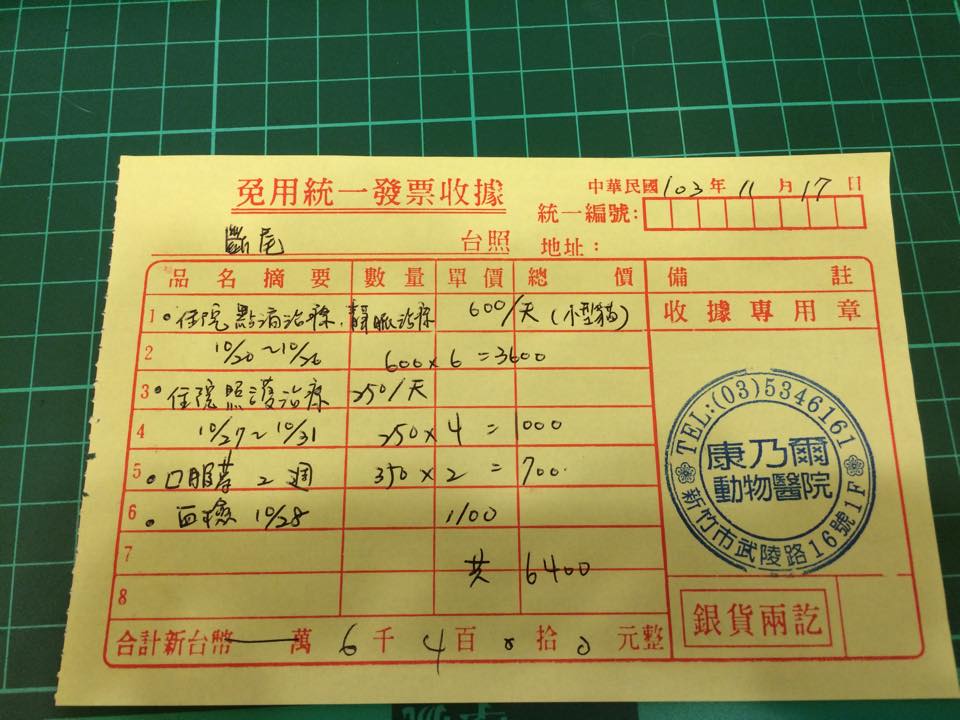 免用統一發票收據
中華民國103年11月17日
統一編號:
斷尾 台照 地址：
品名摘要 數量 單價 總價 備註
1 住院點滴治療、靜脈治療 600/天(小型貓) 收據專用章
2 10/20~10/26 600×6=3600
3 住院照護治療 250/天
4 10/27~10/31 250×4=1000
5 口服藥 2週 350×2=700
6 血檢 10/28 1100
7 共 6400
8
合計新台幣 萬6千4百0拾0元整
TEL:(03)5346161
康乃爾
動物醫院
新竹市武陵路16號1F
銀貨兩訖